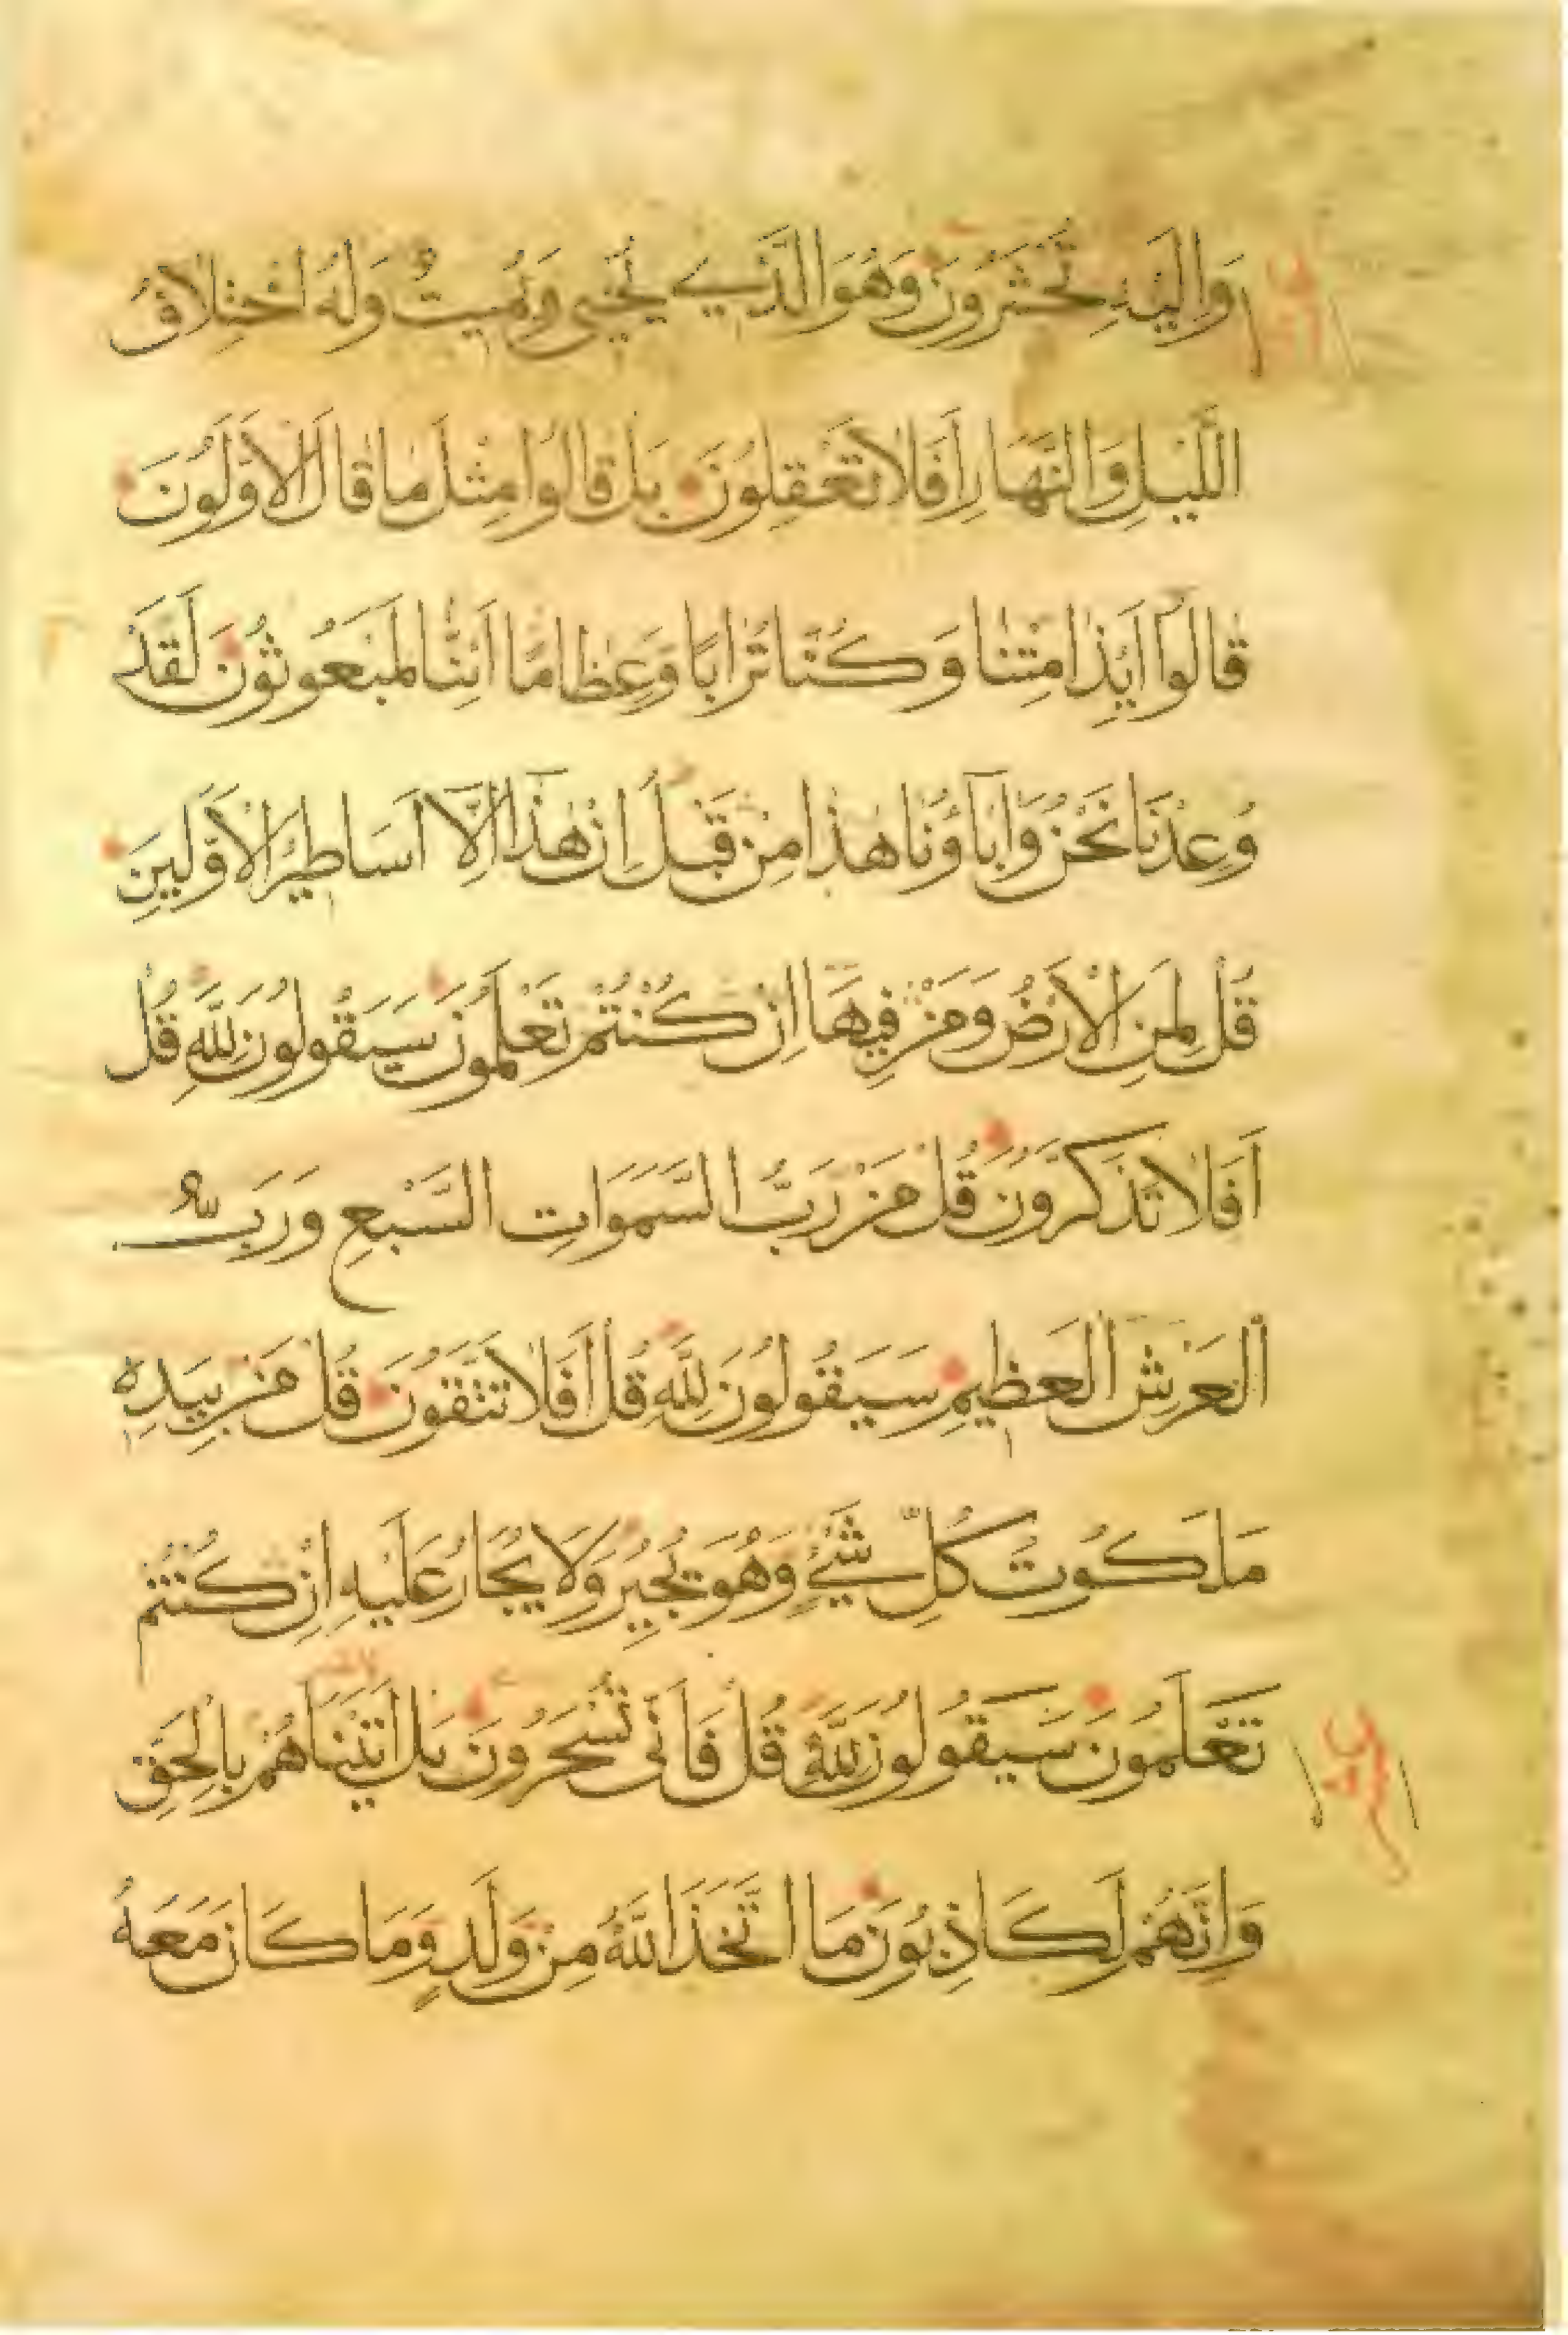 وَاِلَيْهِ تُحْشَرُونَ وَهُوَ الَّذِي يُحْيِي وَيُمِيتُ وَلَهُ اخْتِلَافُ
اللَّيْلِ وَالنَّهَارِ اَفَلَا تَعْقِلُونَ بَلْ قَالُوا مِثْلَ مَا قَالَ الْاَوَّلُونَ
قَالُوا اَئِذَا مِتْنَا وَكُنَّا تُرَابًا وَعِظَامًا اَئِنَّا لَمَبْعُوثُونَ لَقَدْ
وُعِدْنَا نَحْنُ وَاٰبَاؤُنَا هٰذَا مِنْ قَبْلُ اِنْ هٰذَا اِلَّا اَسَاطِيرُ الْاَوَّلِينَ
قُلْ لِمَنِ الْاَرْضُ وَمَنْ فِيهَا اِنْ كُنْتُمْ تَعْلَمُونَ سَيَقُولُونَ لِلَّهِ قُلْ
اَفَلَا تَذَكَّرُونَ قُلْ مَنْ رَبُّ السَّمَوَاتِ السَّبْعِ وَرَبُّ
الْعَرْشِ الْعَظِيمِ سَيَقُولُونَ لِلَّهِ قُلْ اَفَلَا تَتَّقُونَ قُلْ مَنْ بِيَدِهِ
مَلَكُوتُ كُلِّ شَيْءٍ وَهُوَ يُجِيرُ وَلَا يُجَارُ عَلَيْهِ اِنْ كُنْتُمْ
تَعْلَمُونَ سَيَقُولُونَ لِلَّهِ قُلْ فَاَنّٰى تُسْحَرُونَ بَلْ اَتَيْنَاهُمْ بِالْحَقِّ
وَاِنَّهُمْ لَكَاذِبُونَ مَا اتَّخَذَ اللَّهُ مِنْ وَلَدٍ وَمَا كَانَ مَعَهُ